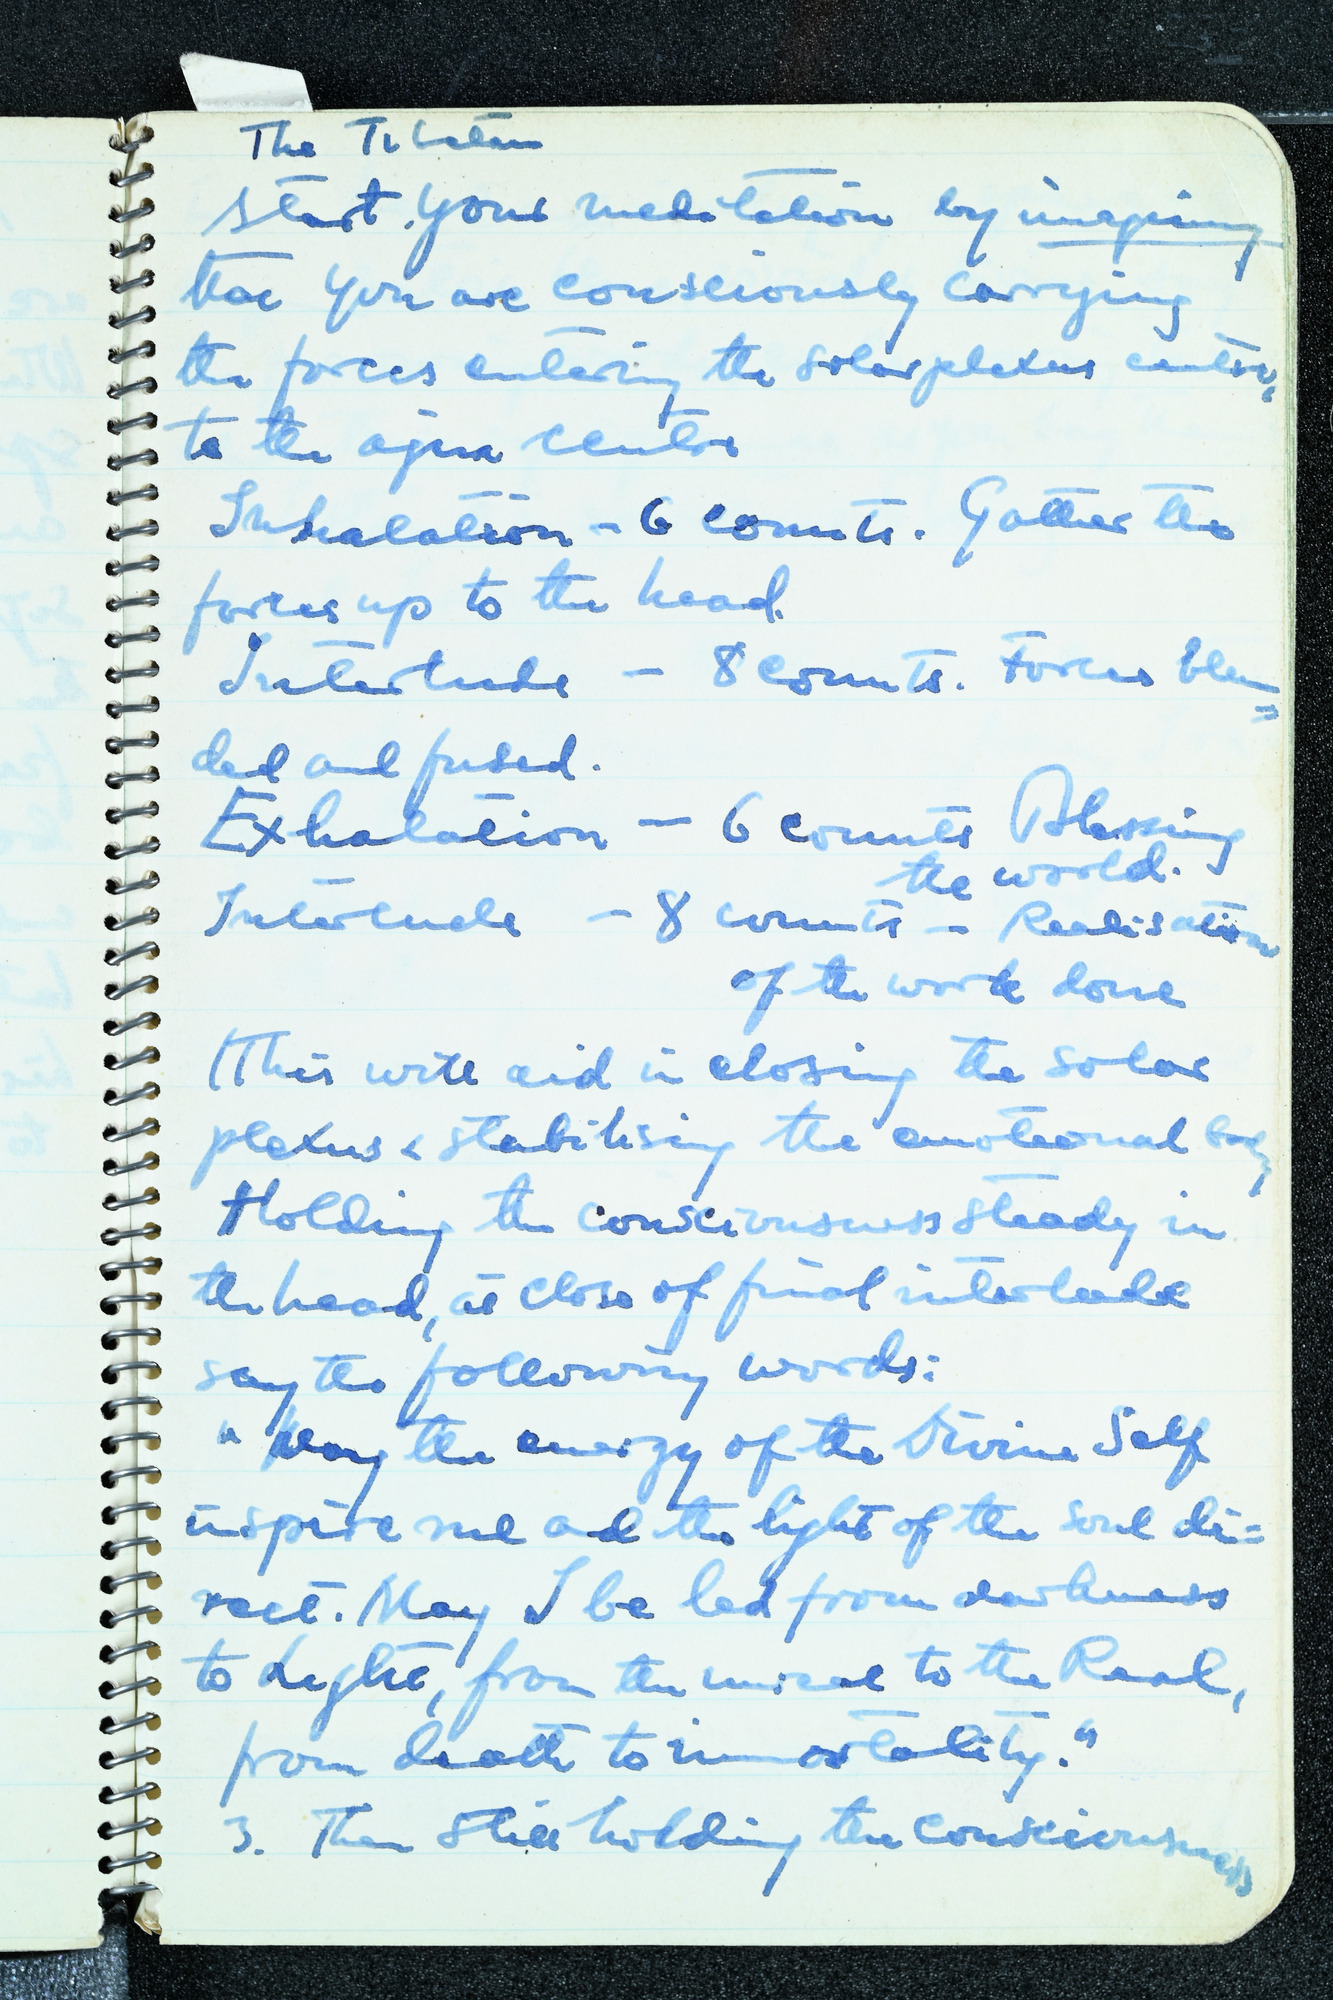 The Tibetan
Start your meditation by imagining
that you are consciously carrying
the forces entering the solar plexus centre,
to the ajna centre
Inhalation - 6 counts. Gather the
forces up to the head.
Interlude - 8 counts. Forces blen=
ded and fused.
Exhalation - 6 counts Blessing
the world.
Interlude - 8 counts - Realisation
of the work done
(This will aid in closing the solar
plexus & stabilising the emotional body
Holding the consciousness steady in
the head, at close of final interlude
say the following words:
"May the energy of the Divine Self
inspire me and the light of the soul di=
rect. May I be led from darkness
to Light, from the unreal to the Real,
from death to immortality."
3. Then still holding the consciousness